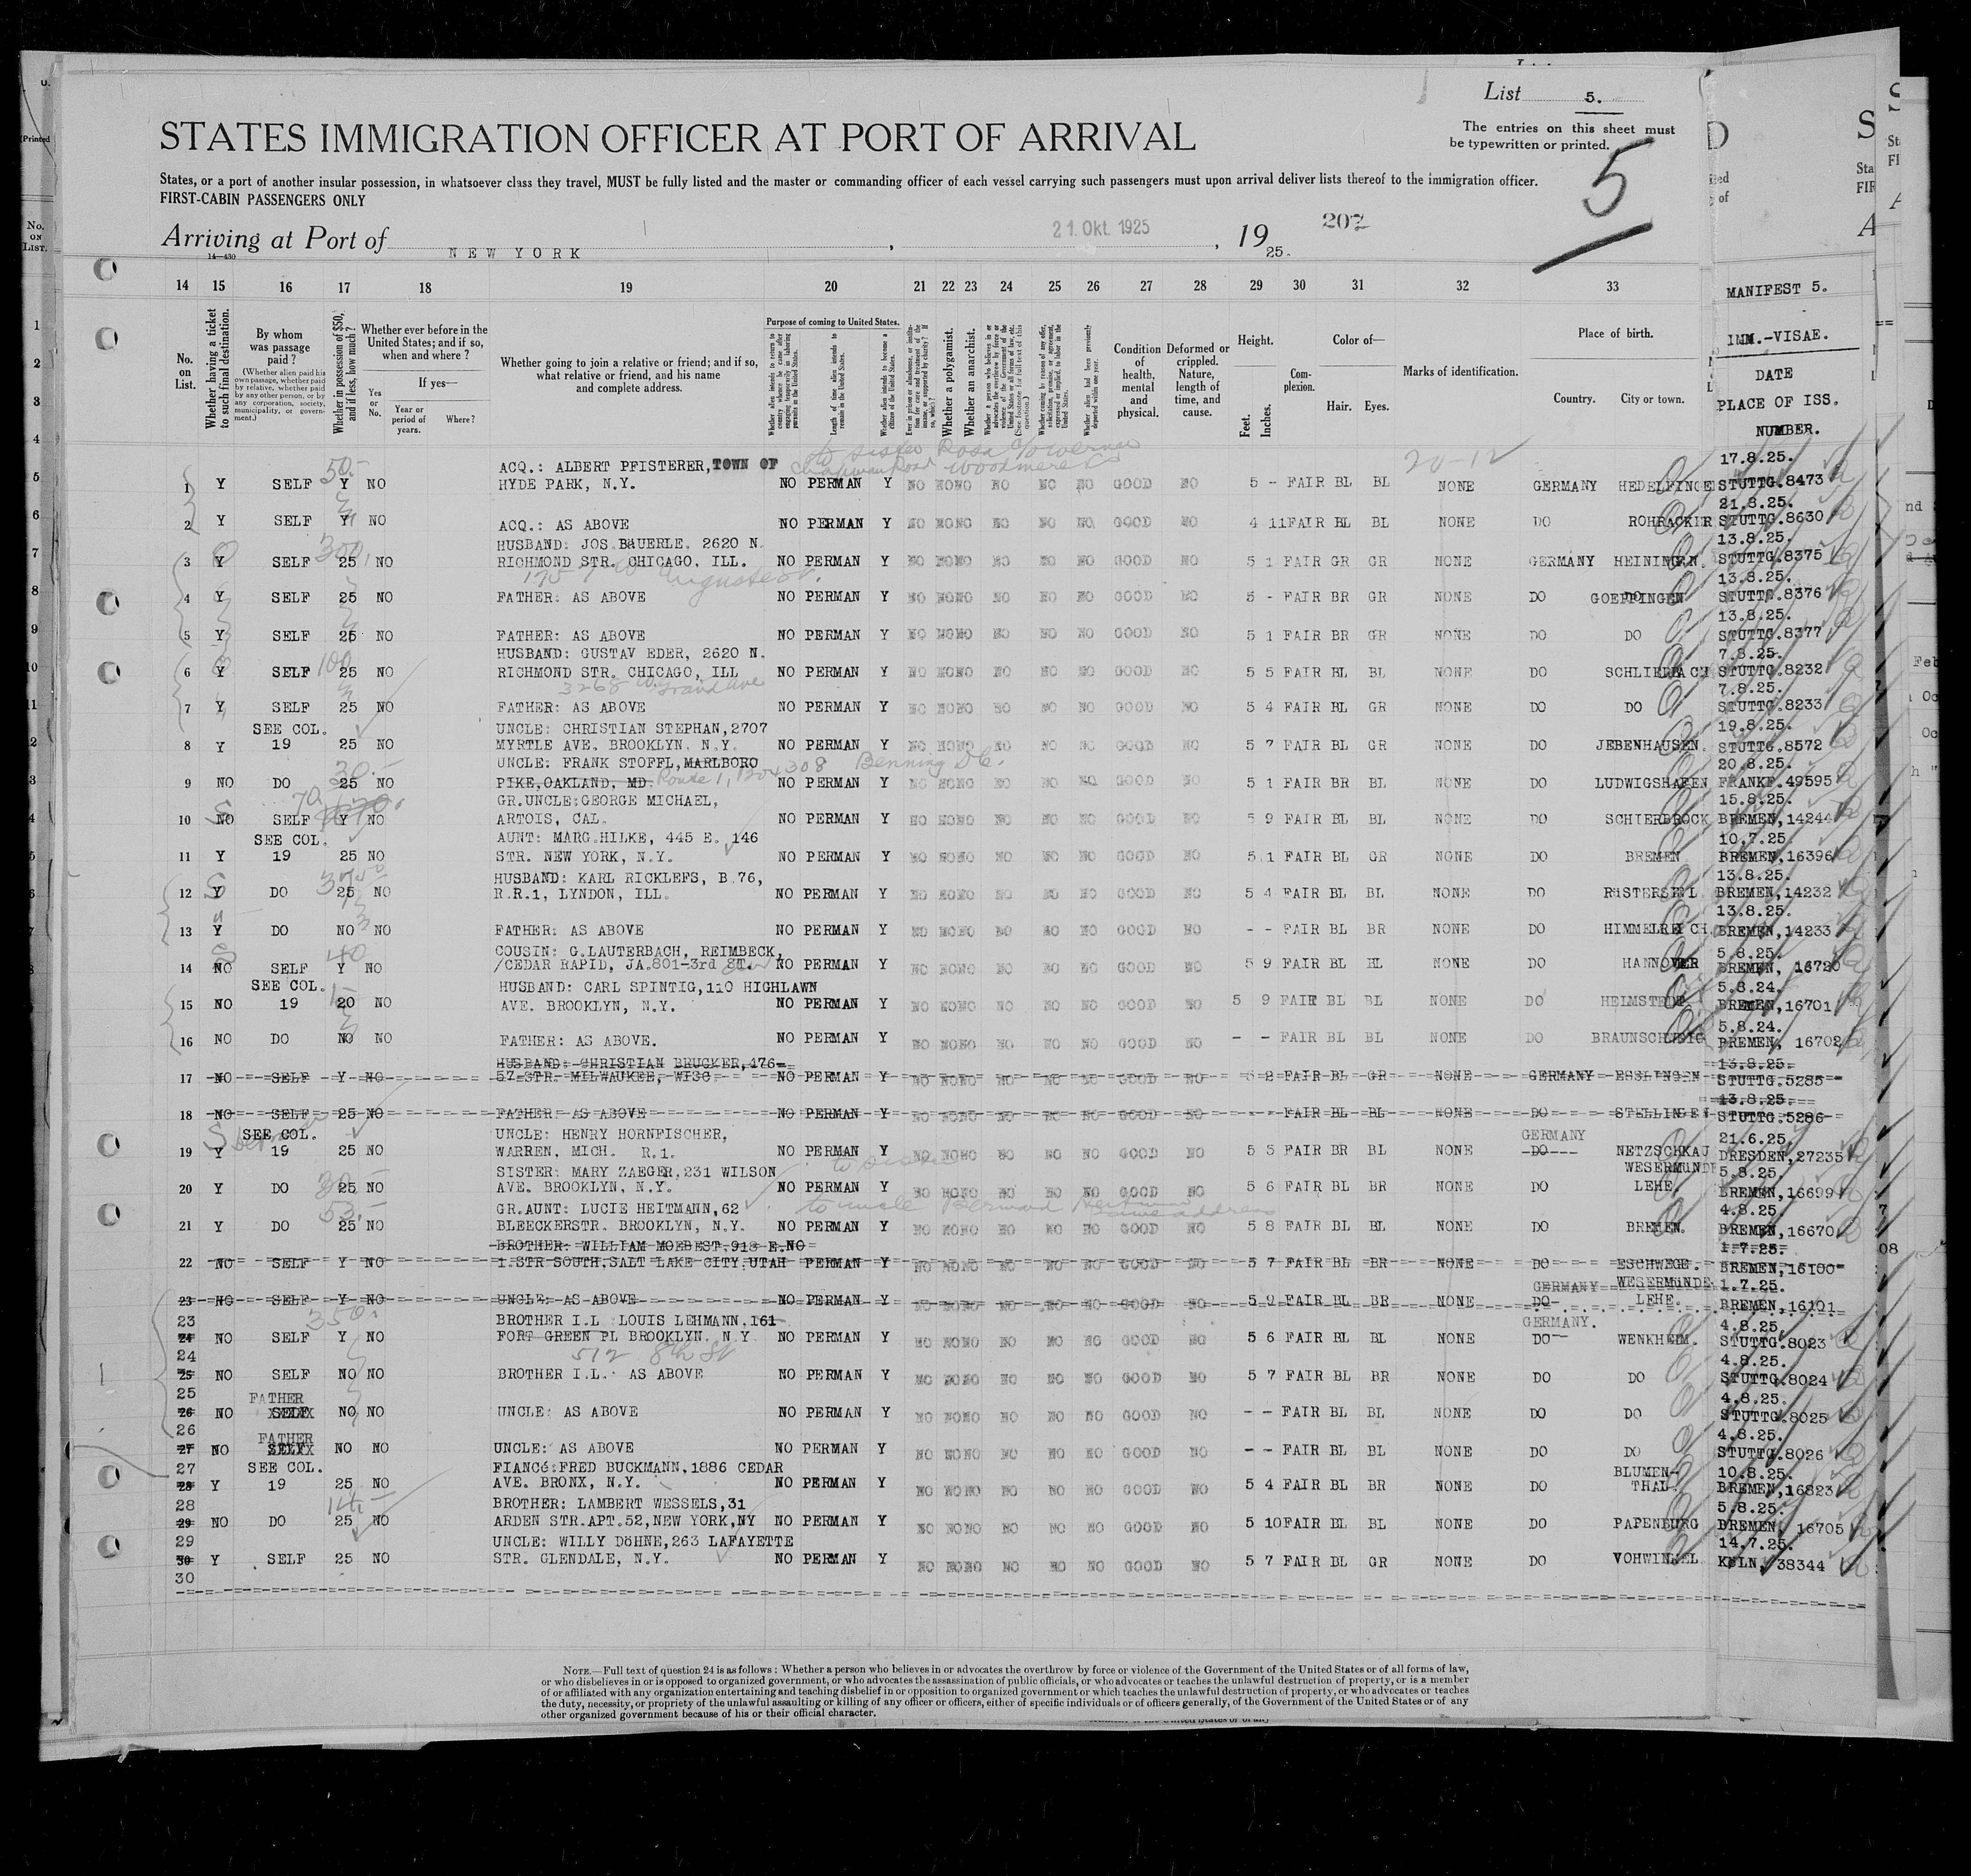 List 5.
STATES IMMIGRATION OFFICER AT PORT OF ARRIVAL
The entries on this sheet must
be typewritten or printed.
5
States, or a port of another insular possession, in whatsoever class they travel, MUST be fully listed and the master or commanding officer of each vessel carrying such passengers must upon arrival deliver lists thereof to the immigration officer.
FIRST-CABIN PASSENGERS ONLY
Arriving at Port of NEW YORK, 21. Okt. 1925, 1925. 207
14—430
14 15 16 17 18 19 20 21 22 23 24 25 26 27 28 29 30 31 32 33
MANIFEST 5.
IMM.-VISAE.
DATE
PLACE OF ISS.
NUMBER.
No. on List.
Whether having a ticket to such final destination.
By whom was passage paid?
(Whether alien paid his own passage, whether paid by relative, whether paid by any other person, or by any corporation, society, municipality, or government.)
Whether in possession of $50, and if less, how much?
Whether ever before in the United States; and if so, when and where?
If yes—
Yes or No.
Year or period of years.
Where?
Whether going to join a relative or friend; and if so, what relative or friend, and his name and complete address.
Purpose of coming to United States.
Length of time alien intends to remain in the United States.
Whether alien intends to become a citizen of the United States.
Whether a polygamist.
Whether an anarchist.
Condition of health, mental and physical.
Deformed or crippled. Nature, length of time, and cause.
Height.
Feet.
Inches.
Complexion.
Color of—
Hair.
Eyes.
Marks of identification.
Place of birth.
Country.
City or town.
50.-
20-12
ACQ.: ALBERT PFISTERER, TOWN OF 17.8.25.
1 Y SELF Y NO HYDE PARK, N.Y. NO PERMAN Y NO NO NO NO NO NO GOOD NO 5 - FAIR BL BL NONE GERMANY HEDELFINGE STUTTG.8473
21.8.25.
2 Y SELF Y NO ACQ.: AS ABOVE NO PERMAN Y NO NO NO NO NO NO GOOD NO 4 11 FAIR BL BL NONE DO ROHRACKER STUTTG.8630
300. HUSBAND: JOS.BäUERLE. 2620 N. 13.8.25.
3 Y SELF 25 NO RICHMOND STR. CHICAGO, ILL. NO PERMAN Y NO NO NO NO NO NO GOOD NO 5 1 FAIR GR GR NONE GERMANY HEININGEN. STUTTG.8375
13.8.25.
4 Y SELF 25 NO FATHER: AS ABOVE NO PERMAN Y NO NO NO NO NO NO GOOD NO 5 - FAIR BR GR NONE DO GOEPPINGEN STUTTG.8376
13.8.25.
5 Y SELF 25 NO FATHER: AS ABOVE NO PERMAN Y NO NO NO NO NO NO GOOD NO 5 1 FAIR BR GR NONE DO DO STUTTG.8377
100 HUSBAND: GUSTAV EDER, 2620 N. 7.8.25.
6 Y SELF 25 NO RICHMOND STR. CHICAGO, ILL NO PERMAN Y NO NO NO NO NO NO GOOD NO 5 5 FAIR BL BL NONE DO SCHLIERBACH STUTTG.8232
3268 W. Grand Ave 7.8.25.
7 Y SELF 25 NO FATHER: AS ABOVE NO PERMAN Y NO NO NO NO NO NO GOOD NO 5 4 FAIR BL GR NONE DO DO STUTTG.8233
SEE COL. UNCLE: CHRISTIAN STEPHAN,2707 19.8.25.
8 Y 19 25 NO MYRTLE AVE. BROOKLYN. N.Y. NO PERMAN Y NO NO NO NO NO NO GOOD NO 5 7 FAIR BL GR NONE DO JEBENHAUSEN. STUTTG.8572
30.- UNCLE: FRANK STOFFL,MARLBORO Benning D.C. 20.8.25.
9 NO DO 25 NO PIKE,OAKLAND, MD. Route 1, Box 308 NO PERMAN Y NO NO NO NO NO NO GOOD NO 5 1 FAIR BR BL NONE DO LUDWIGSHAFEN FRANKF.49595
70 GR.UNCLE:GEORGE MICHAEL, 15.8.25.
10 NO SELF Y NO ARTOIS, CAL. NO PERMAN Y NO NO NO NO NO NO GOOD NO 5 9 FAIR BL BL NONE DO SCHIERBROCK BREMEN,14244
SEE COL. AUNT: MARG.HILKE, 445 E. 146 10.7.25
11 Y 19 25 NO STR. NEW YORK, N.Y. NO PERMAN Y NO NO NO NO NO NO GOOD NO 5 1 FAIR BL GR NONE DO BREMEN BREMEN,16396
HUSBAND: KARL RICKLEFS, B.76, 13.8.25.
12 Y DO 25 NO R.R.1, LYNDON, ILL. NO PERMAN Y NO NO NO NO NO NO GOOD NO 5 4 FAIR BL BL NONE DO RüSTERSIEL BREMEN,14232
13.8.25.
13 Y DO NO NO FATHER: AS ABOVE NO PERMAN Y NO NO NO NO NO NO GOOD NO - - FAIR BL BR NONE DO HIMMELREICH. BREMEN,14233
40 COUSIN: G.LAUTERBACH, REIMBECK, 5.8.25.
14 NO SELF Y NO /CEDAR RAPID, JA.801-3rd ST. NO PERMAN Y NO NO NO NO NO NO GOOD NO 5 9 FAIR BL BL NONE DO HANNOVER BREMEN, 16720
SEE COL. HUSBAND: CARL SPINTIG,110 HIGHLAWN 5.8.24.
15 NO 19 20 NO AVE. BROOKLYN, N.Y. NO PERMAN Y NO NO NO NO NO NO GOOD NO 5 9 FAIR BL BL NONE DO HELMSTEDT BREMEN,16701
5.8.24.
16 NO DO NO NO FATHER: AS ABOVE. NO PERMAN Y NO NO NO NO NO NO GOOD NO - - FAIR BL BL NONE DO BRAUNSCHWEIG BREMEN, 16702
HUSBAND: CHRISTIAN BRUCKER,476 13.8.25.
17 NO SELF Y NO 57 STR. MILWAUKEE, WISC NO PERMAN Y NO NO NO NO NO NO GOOD NO 5 2 FAIR BL GR NONE GERMANY ESSLINGEN STUTTG.5285
13.8.25.
18 NO SELF 25 NO FATHER: AS ABOVE NO PERMAN Y NO NO NO NO NO NO GOOD NO - - FAIR BL BL NONE DO STELLINGEN STUTTG.5286
SEE COL. UNCLE: HENRY HORNFISCHER, GERMANY 21.6.25.
19 Y 19 25 NO WARREN, MICH. R.1. NO PERMAN Y NO NO NO NO NO NO GOOD NO 5 5 FAIR BR BL NONE DO NETZSCHKAU DRESDEN,27235
SISTER: MARY ZAEGER,231 WILSON WESERMüNDE 5.8.25
20 Y DO 25 NO AVE. BROOKLYN, N.Y. NO PERMAN Y NO NO NO NO NO NO GOOD NO 5 6 FAIR BL BR NONE DO LEHE. BREMEN,16699
53.- GR.AUNT: LUCIE HEITMANN,62 to uncle Bernard same address 4.8.25.
21 Y DO 25 NO BLEECKERSTR. BROOKLYN, N.Y. NO PERMAN Y NO NO NO NO NO NO GOOD NO 5 8 FAIR BL BL NONE DO BREMEN. BREMEN,16670
BROTHER: WILLIAM MOEBEST,918 E. NO 1.7.25.
22 NO SELF Y NO 1.STR SOUTH,SALT LAKE CITY,UTAH PERMAN Y NO NO NO NO NO NO GOOD NO 5 7 FAIR BL BR NONE DO ESCHWEGE. BREMEN,16100
GERMANY WESERMüNDE 1.7.25.
23 NO SELF Y NO UNCLE: AS ABOVE NO PERMAN Y NO NO NO NO NO NO GOOD NO 5 9 FAIR BL BR NONE DO LEHE. BREMEN,16101
23 350. BROTHER I.L. LOUIS LEHMANN,161 GERMANY. 4.8.25.
24 NO SELF Y NO FORT GREEN PL BROOKLYN, N.Y NO PERMAN Y NO NO NO NO NO NO GOOD NO 5 6 FAIR BL BL NONE DO WENKHEIM. STUTTG.8023
24 512 8th St 4.8.25.
25 NO SELF NO NO BROTHER I.L. AS ABOVE NO PERMAN Y NO NO NO NO NO NO GOOD NO 5 7 FAIR BL BR NONE DO DO STUTTG.8024
25 FATHER 4.8.25.
26 NO SELF NO NO UNCLE: AS ABOVE NO PERMAN Y NO NO NO NO NO NO GOOD NO - - FAIR BL BL NONE DO DO STUTTG.8025
26 FATHER 4.8.25.
27 NO SELF NO NO UNCLE: AS ABOVE NO PERMAN Y NO NO NO NO NO NO GOOD NO - - FAIR BL BL NONE DO DO STUTTG.8026
27 SEE COL. FIANCé:FRED BUCKMANN,1886 CEDAR BLUMEN- 10.8.25.
28 Y 19 25 NO AVE. BRONX, N.Y. NO PERMAN Y NO NO NO NO NO NO GOOD NO 5 4 FAIR BL BR NONE DO THAL. BREMEN,16823
28 BROTHER: LAMBERT WESSELS,31 5.8.25.
29 NO DO 25 NO ARDEN STR.APT.52,NEW YORK,NY NO PERMAN Y NO NO NO NO NO NO GOOD NO 5 10 FAIR BL BL NONE DO PAPENBURG BREMEN, 16705
29 UNCLE: WILLY DöHNE,263 LAFAYETTE 14.7.25.
30 Y SELF 25 NO STR. GLENDALE, N.Y. NO PERMAN Y NO NO NO NO NO NO GOOD NO 5 7 FAIR BL GR NONE DO VOHWINKEL KöLN, 38344
30
NOTE.—Full text of question 24 is as follows: Whether a person who believes in or advocates the overthrow by force or violence of the Government of the United States or of all forms of law,
or who disbelieves in or is opposed to organized government, or who advocates the assassination of public officials, or who advocates or teaches the unlawful destruction of property, or is a member
of or affiliated with any organization entertaining and teaching disbelief in or opposition to organized government or which teaches the unlawful destruction of property, or who advocates or teaches
the duty, necessity, or propriety of the unlawful assaulting or killing of any officer or officers, either of specific individuals or of officers generally, of the Government of the United States or of any
other organized government because of his or their official character.